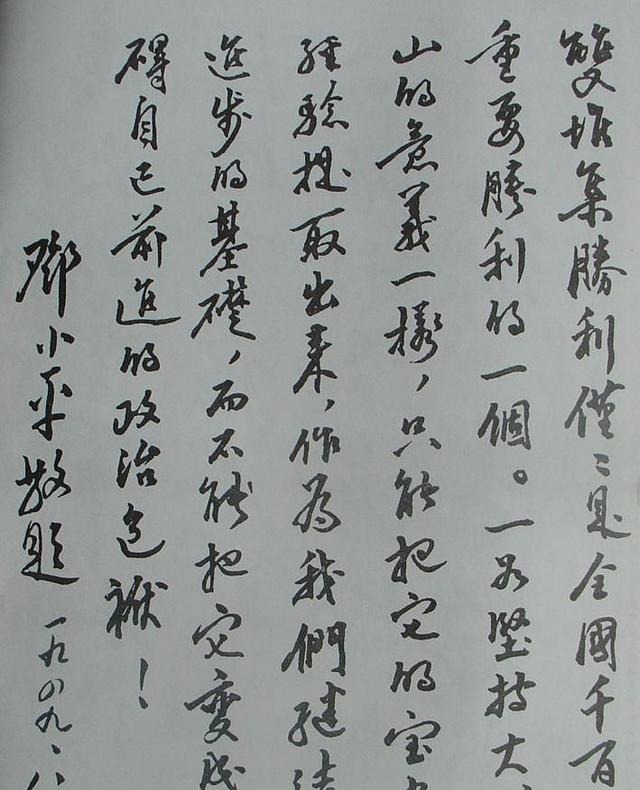 雙堆集勝利僅〻是全國千百
重要勝利的一個。一如堅持大
山的意義一樣，只能把它的宝
經驗提取出来，作為我們继续
進步的基礎，而不能把它变成
碍自己前進的政治包袱！
鄧小平敬題 一九四九、八